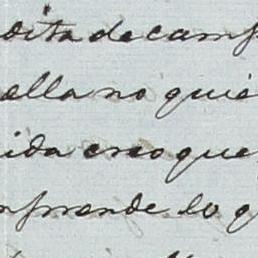 dita de camp
ella no quie
ida creo que
mprende lo q